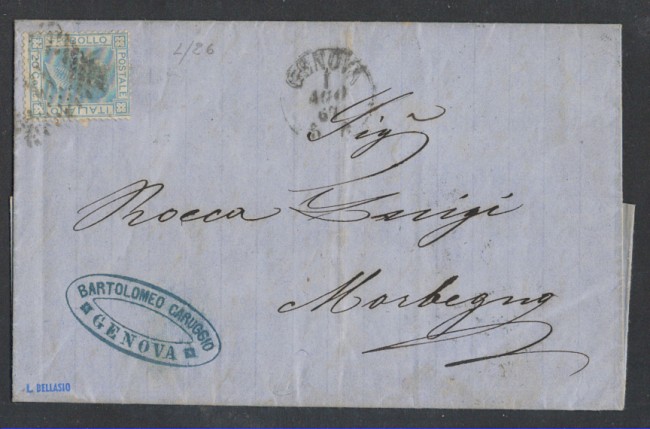 BOLLO
POSTALE
ITALIANO
L/26
GENOVA
1
AGO
Sigr
Rocca Luigi
Morbegno
BARTOLOMEO CARUGGIO
GENOVA
L. BELLASIO